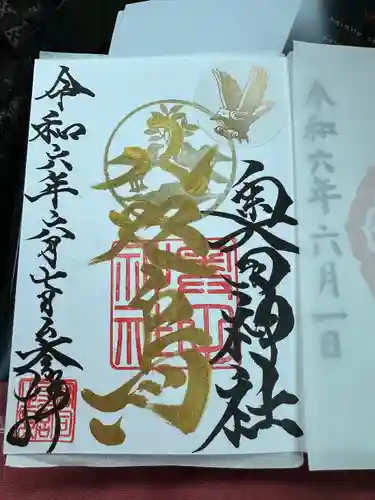 令和六年六月一日
奥田神社
八咫烏
令和六年六月七日参拝